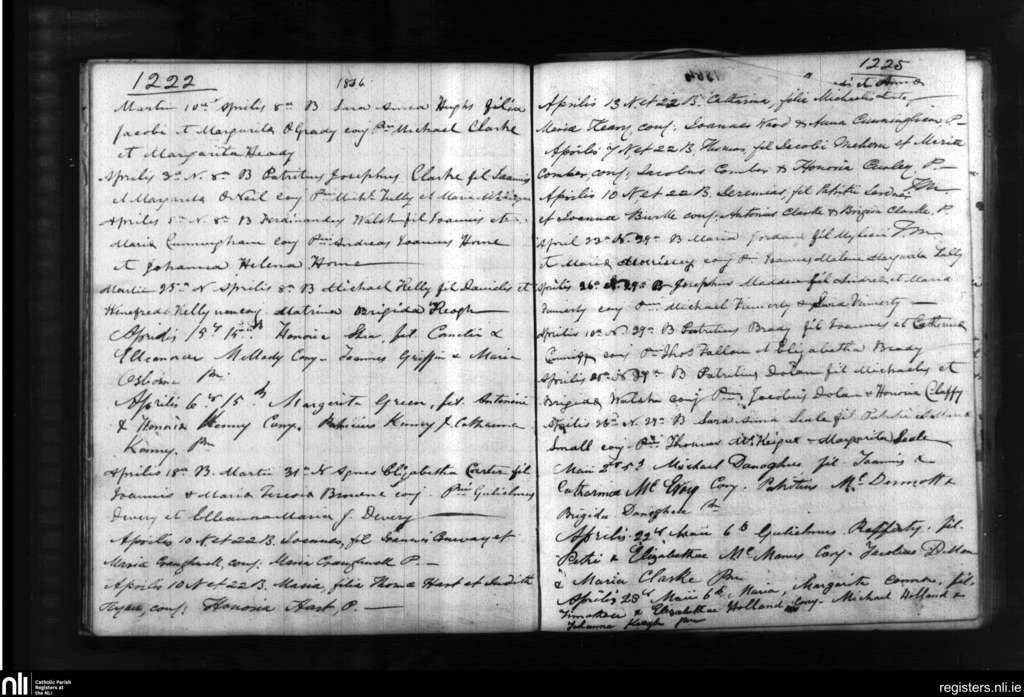 1222
1886
Martii 10th Aprilis 8th B Sara Hughs filia
Jacobi et Margarita O'Grady conj Pm Michael Clarke
et Margarita Heady
Aprilis 3rd N. 8th B Patritius Josephus Clarke fil Joannis
et Margarita O'Neil conj Pm Mich. Kelly et Maria
Aprilis 5th N. 8th B Ferdinandus Walsh fil Joannis et
Maria Cunningham conj Pm Andreas Joannes Horne
et Johanna Helena Horne
Martii 25th N Aprilis 8th B Michael Kelly fil Danielis et
Winefreda Kelly conj Matrina Brigida Keogh
Aprilis 15th Honoria Shea, fil.
Elleonorae McNally Conj. Joannes Griffin & Maria
Osborne Pm
Aprilis 6th & 15th Margarita Green, fil. Antonii
& Honoria Kenny Conj. Patricius Kenny & Catharina
Kenny. Pm
Aprilis 18th B. Martii 31st N Agnes Elizabetha Carter fil
Joannis & Maria Teresia Browne conj. Pm Gulielmus
Dwery et Elleanna Maria J. Dwery
Aprilis 10 N et 22 B. Joannes, fil Joannis Conway et
Maria Craughwell, conj. Maria Craughwell P.
Aprilis 10 N et 22 B. Maria, filia Thoma Hart et
conj: Honoria Hart P.
1225
et Anna
Aprilis 13 N et 22 B. Catherina, filia Michaelis
Maria Keary, conj: Joannes Ward & Anna Cunningham P.
Aprilis 7 N et 22 B. Thomas, fil Jacobi Mehorn et Maria
Comber, conj: Jacobus Comber & Honoria Cauley P.
Aprilis 10 N et 22 B. Jeremias, fil Patritii
et Joanna Burke conj: Antonius Clarke & Brigida Clarke. P.
April 22nd N. 29th B Maria Jordan fil
et Maria Morrissey conj Pm Joannes Malone Margarita Lally
Aprilis 26th N. 29th B Josephus Madden fil Andreae et Maria
conj Pm Michael & Sara
Aprilis 10th N. 29th B Patritius Brady fil Joannis et Catherina
conj Pm Thos Fallon et Elizabetha Brady
Aprilis 25th N. 29th B Patritius Dolan fil Michaelis et
Brigida Walsh conj Pm Jacobus Dolan & Honoria Claffy
Aprilis 28th N. 29th B Sara Anna Seale fil Patritii et Maria
Small conj Pm Thomas McKeigue & Margarita Seale
Maii 2nd 5th Michael Donoghue fil Joannis &
Catharinae McEvoy Conj. Patritius McDermott &
Brigida Donoghue Pm
Aprilis 22nd Maii 6th Gulielmus Rafferty, fil.
Petri & Elizabethae McManus Conj. Jacobus Dillon
& Maria Clarke Pm
Aprilis 28th Maii 6th Maria Margarita Connor, fil.
Timothaei & Elizabethae Holland, Conj. Michael Holland &
Johanna Keogh Pm
nli
Catholic Parish
Registers at
the NLI
registers.nli.ie